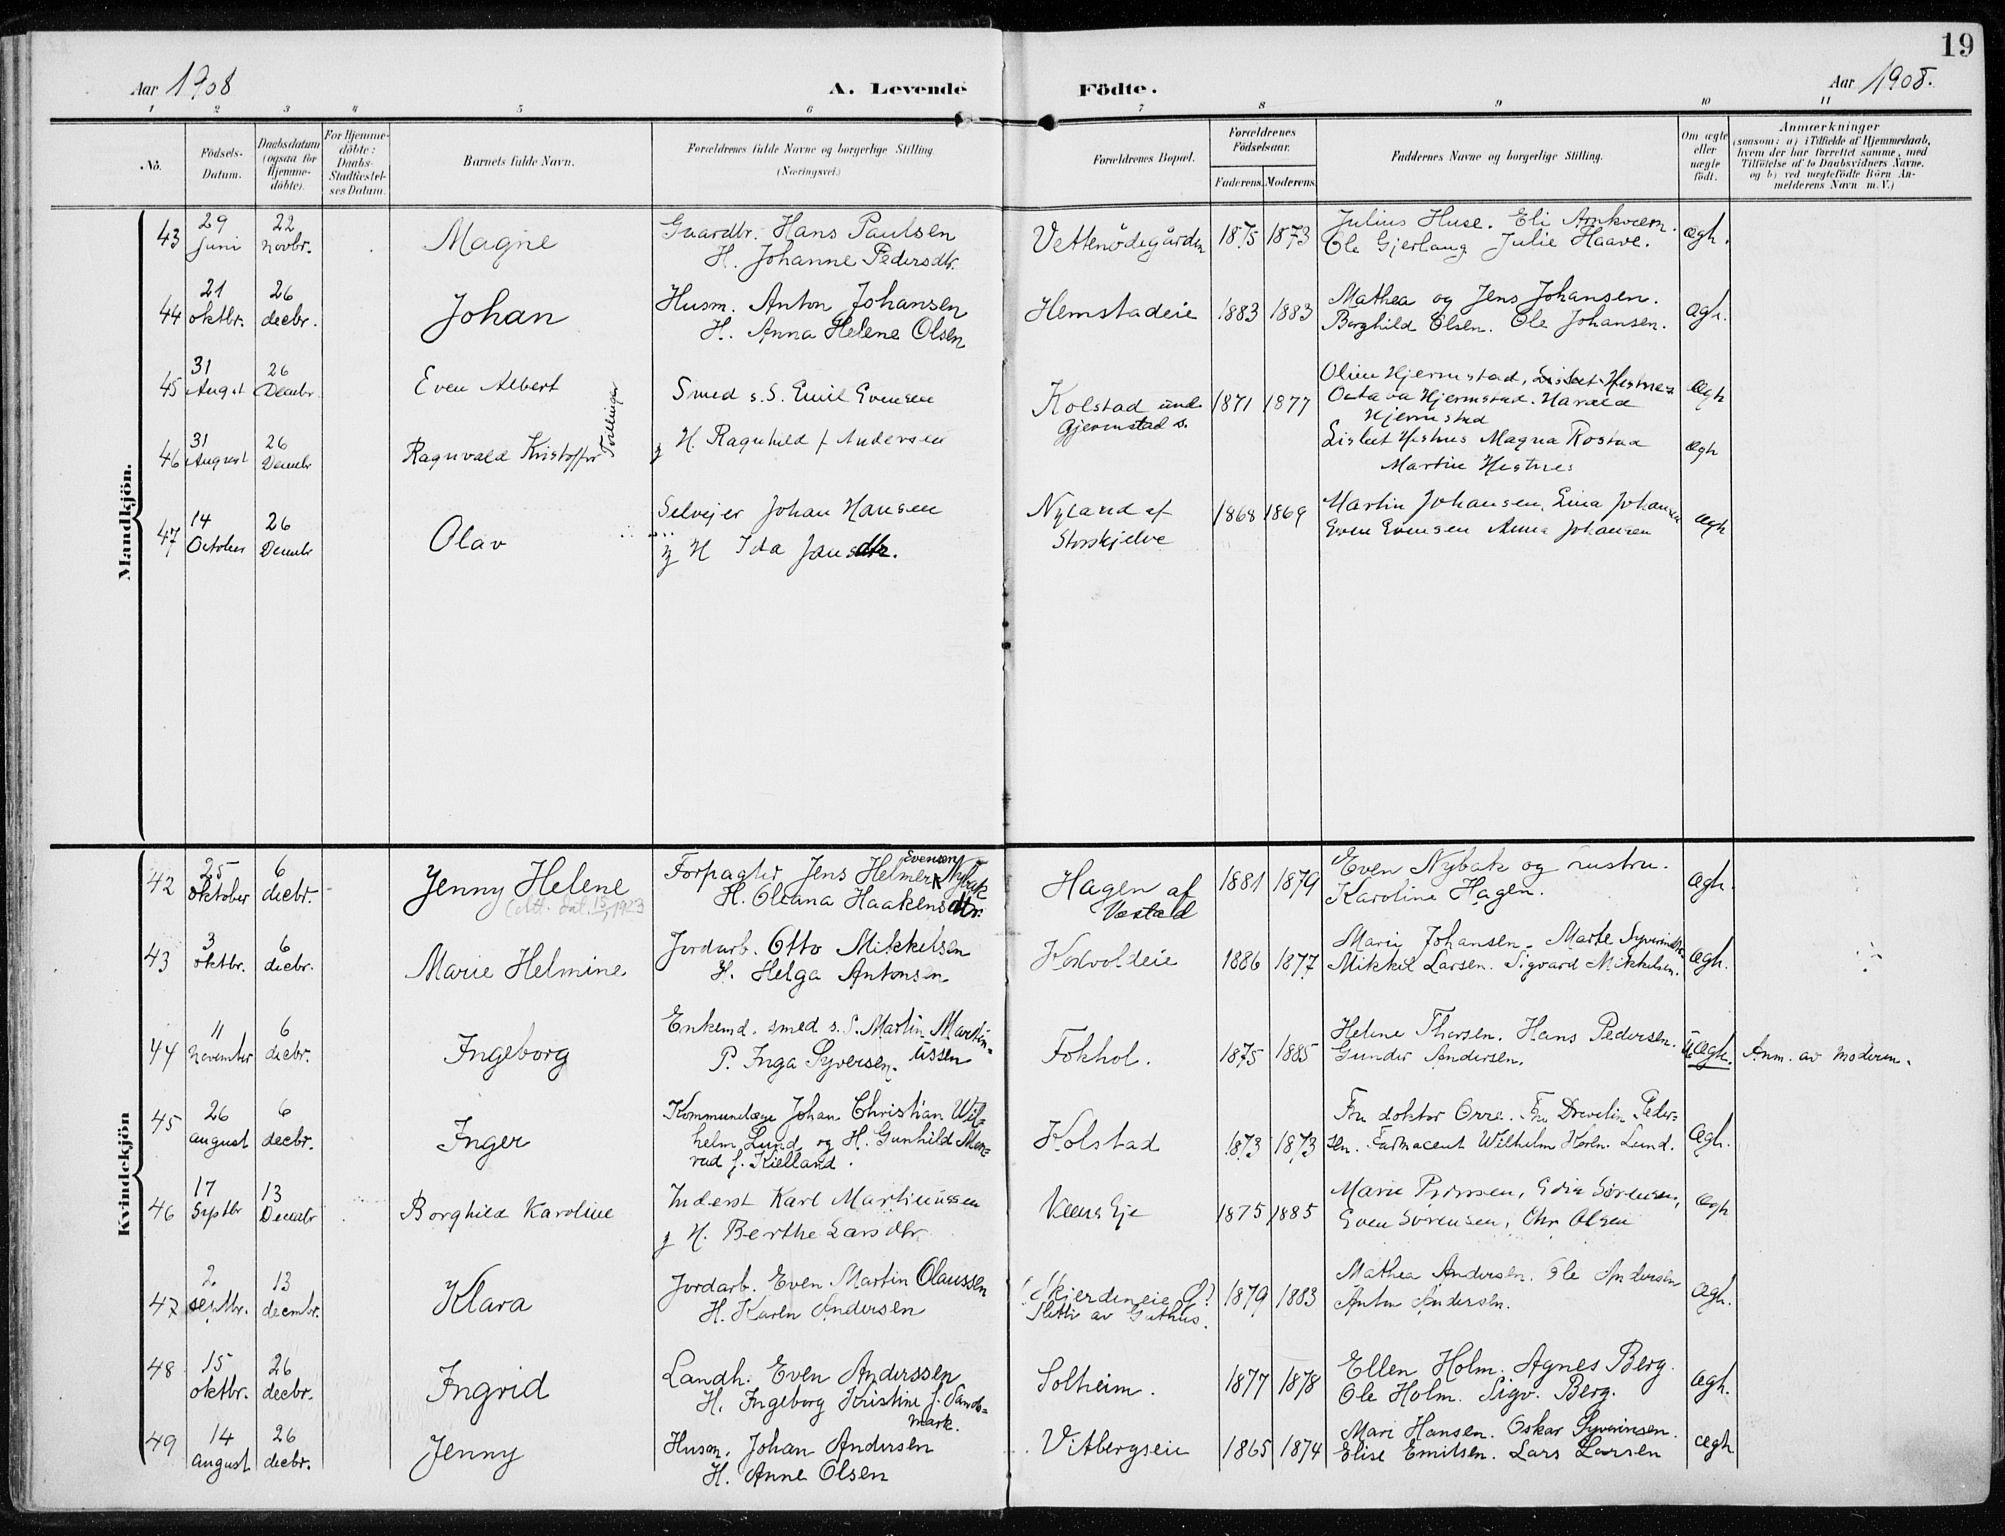 19
Aar 1908 A. Levende Födte. Aar 1908.
1 2 3 4 5 6 7 8 9 10 11
No. Födsels-Datum. Daabsdatum (ogsaa for Hjemmedöbte). For Hjemmedöbte: Daabs-Stadfæstelses Datum. Barnets fulde Navn. Forældrenes fulde Navne og borgerlige Stilling (Næringsvei.) Forældrenes Bopæl. Forældrenes Födselsaar. Faderens. Moderens. Faddernes Navne og borgerlige Stilling. Om ægte eller uægte födt. Anmærkninger (saasom: a) i Tilfælde af Hjemmedaab, hvem der har forrettet samme, med Tilföielse af to Daabsvidners Navne. og b) ved uægtefödte Börn Anmelderens Navn m. V.)
Mandkjön.
43 29 juni 22 novbr. Magne Gaardbr. Hans Paulsen
H. Johanne Pedersdtr. Vettenödegården 1875 1873 Julius Huse. Eli Arnkværn.
Ole Gjerlaug Julie Haave. ægh.
44 21 oktbr. 26 decbr. Johan Husm. Anton Johansen
H. Anna Helene Olsen Hemstadeie 1883 1883 Mathea og Jens Johansen.
Borghild Olsen. Ole Johansen. ægh.
45 31 August 26 Decmbr Even Albert Smed s. S. Emil Evensen Kolstad und Gjermstad s. 1871 1877 Oline Hjermstad, Lisbet Hestnes
Octava Hjermstad. Harald
Hjermstad ægh
Tvillinger
46 31 August 26 Decmbr Ragnvald Kristoffer H. Ragnhild f Andersen
Lisbet Hestnes Magna Rostad
Martin Hestnes ægh
47 14 October 26 Decmbr Olav Selvejer Johan Hansen
H Ida Jansdtr. Nyland af Storskjelve 1868 1869 Martin Johansen, Lina Johansen
Even Evensen Anna Johansen ægh
Kvindekjön
42 25 oktober 6 decbr. Jenny Helene
(Att. dat. 15/ 1923 Forpagter Jens Helmer Evensen Nybak
H. Oleana Haakensdtr. Hagen af Vestad 1881 1879 Even Nybak og hustru.
Karoline Hagen. ægh.
43 3 oktbr. 6 decbr. Marie Helmine Jordarb. Otto Mikkelsen
H. Helga Antonsen 1886 1877 Marie Johansen. Marte
Mikkel Larsen. Sigvard Mikkelsen. ægh.
44 11 november 6 decbr. Ingeborg Enkemd. smed s. S. Martin Martinussen
P. Inga Syversen. Fokhol. 1875 1885 Helene Thorsen. Hans Pedersen.
Gunder Andersen. uægh. Anm. av moderen.
45 26 august 6 decbr. Inger Kommunelæge Johan Christian Wilhelm
Lund og H. Gunhild Monrad
f. Kielland. Kolstad 1873 1873 Fru doktor Orre. Fru Drevelin Pedersen.
Farmaceut Wilhelm Lund. ægh.
46 17 Septbr 13 Decmbr Borghild Karoline Inderst Karl Martinussen
H. Berthe Larsdtr. Eje 1875 1885 Marie Pedersen, Sörensen,
Even Sörensen, Chr Olsen ægh
47 2. septbr. 13 decmbr. Klara Jordarb. Even Martin Olaussen
H. Karen Andersen (Skjerdeneie ?)
av Gåthus. 1879 1883 Mathea Andersen. Ole Andersen
Anton Andersen. ægh.
48 15 oktbr. 26 decbr. Ingrid Landh. Even Anderssen
H. Ingeborg Kristine f. Sandsmark. Solheim. 1877 1878 Ellen Holm. Agnes Berg.
Ole Holm. Sigv. Berg. ægh.
49 14 august 26 decbr. Jenny Husm. Johan Andersen
H. Anne Olsen Vitbergseie 1865 1874 Mari Hansen. Oskar Syverinsen.
Elise Emilsen. Lars Larsen ægh